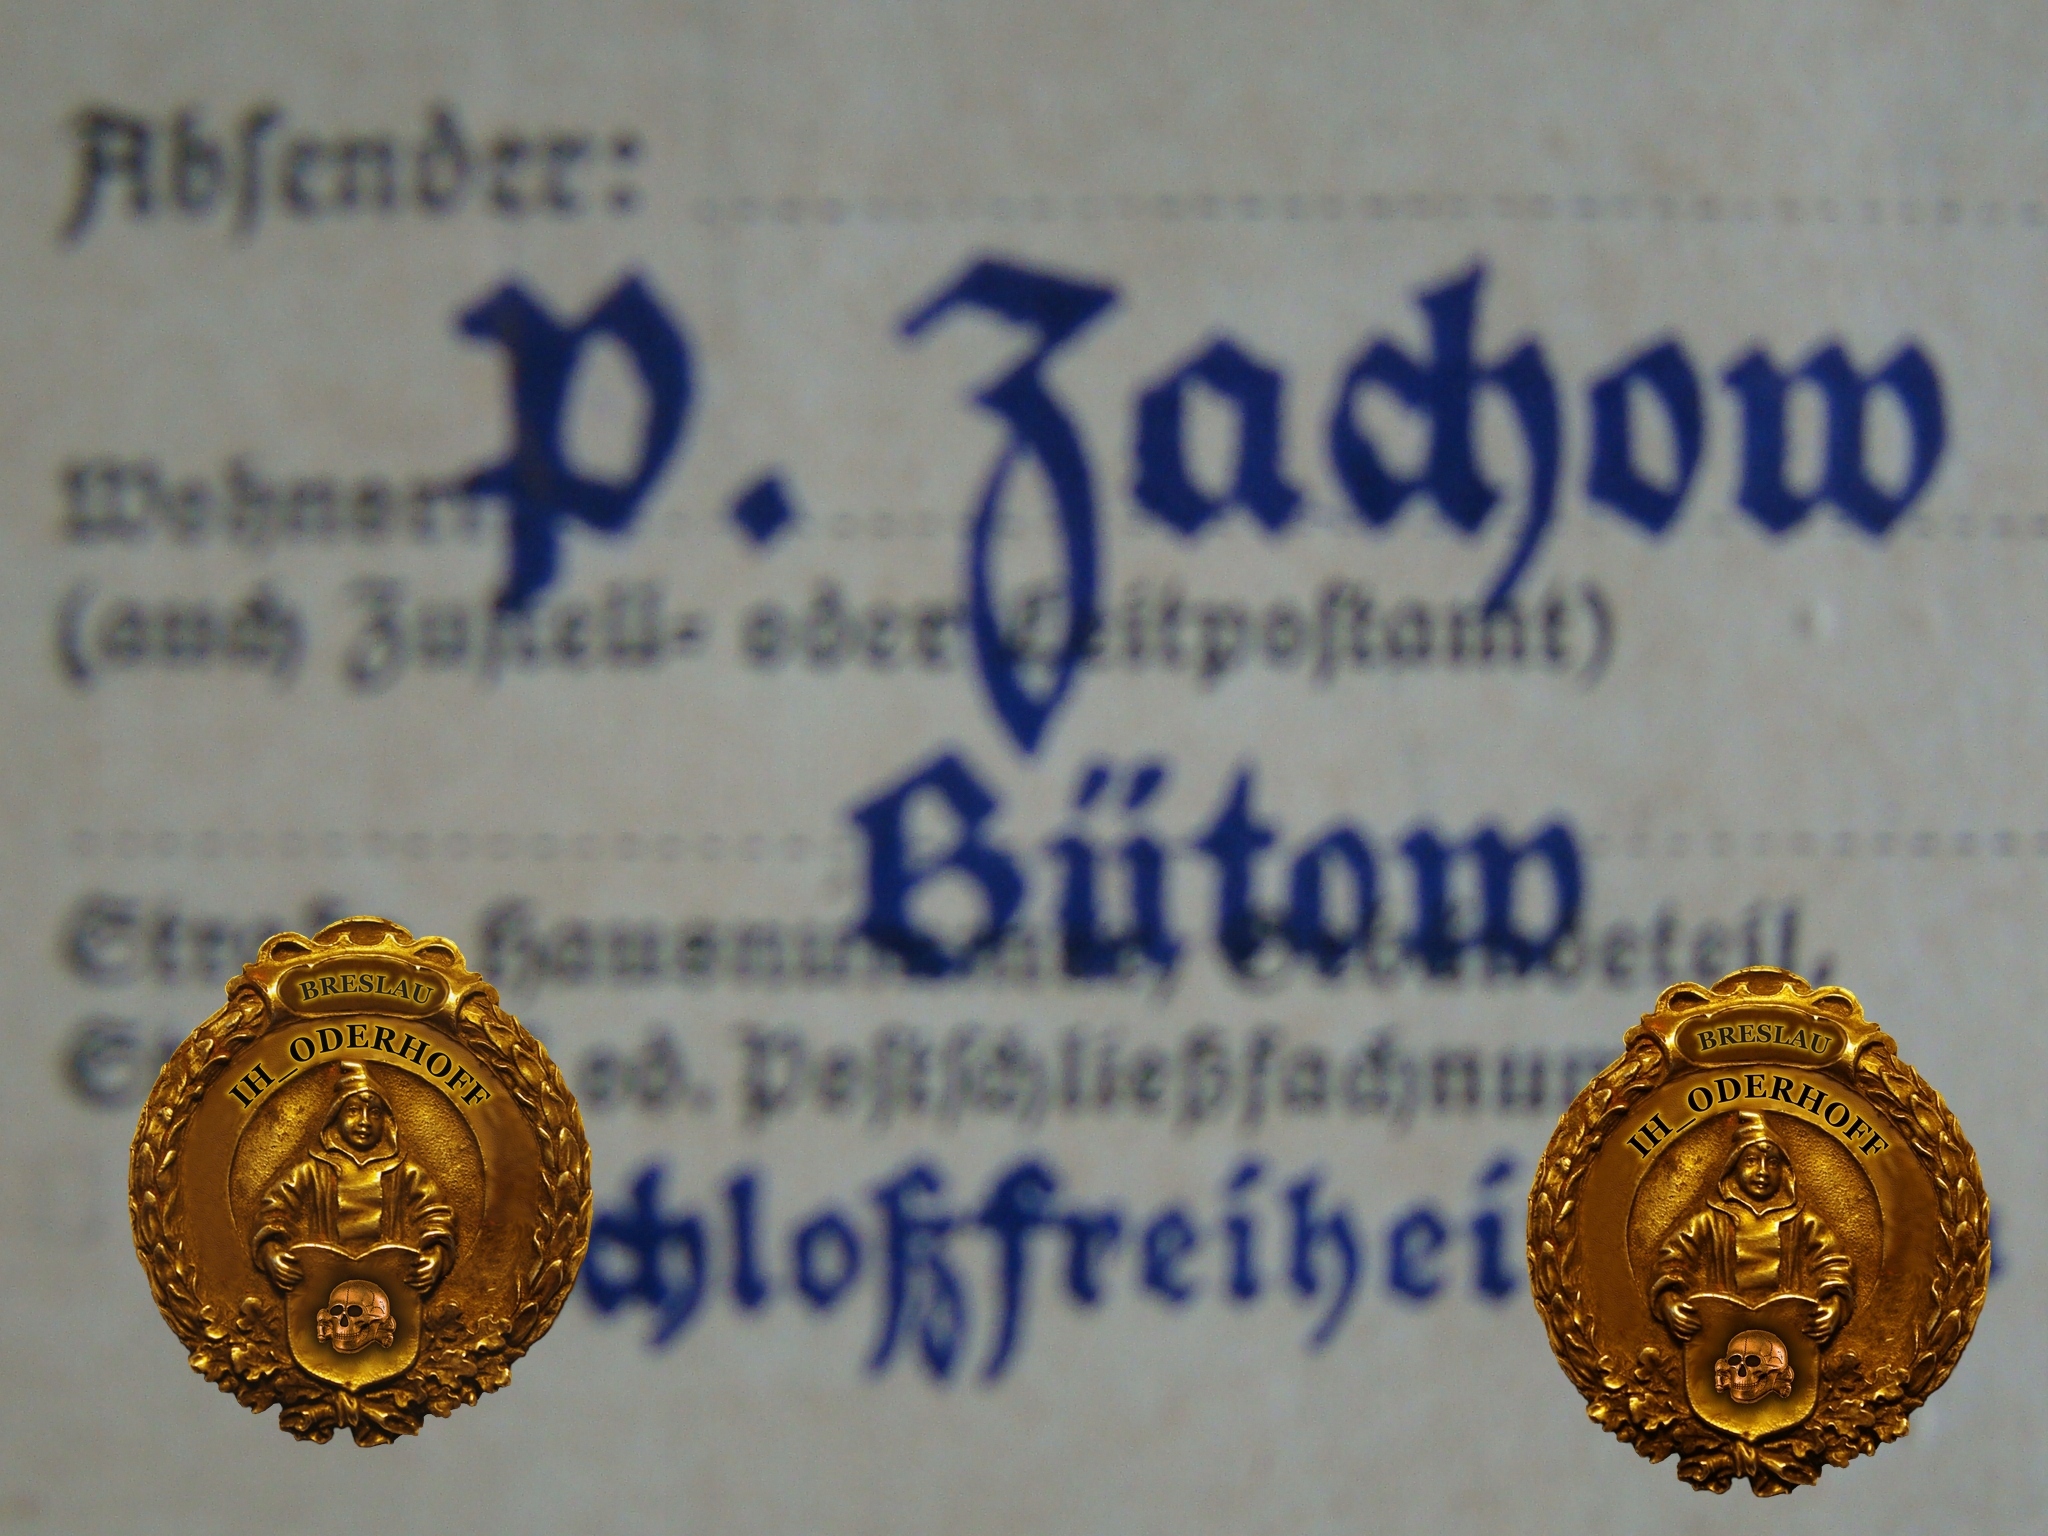 Absender:
P. Zachow
Wohnort
(auch Zustell- oder Leitpostamt)
Bütow
Straße, Hausnummer, Gebäudeteil,
od. Postschließfachnum
chloßfreihei
BRESLAU
IH_ODERHOFF
BRESLAU
IH_ODERHOFF